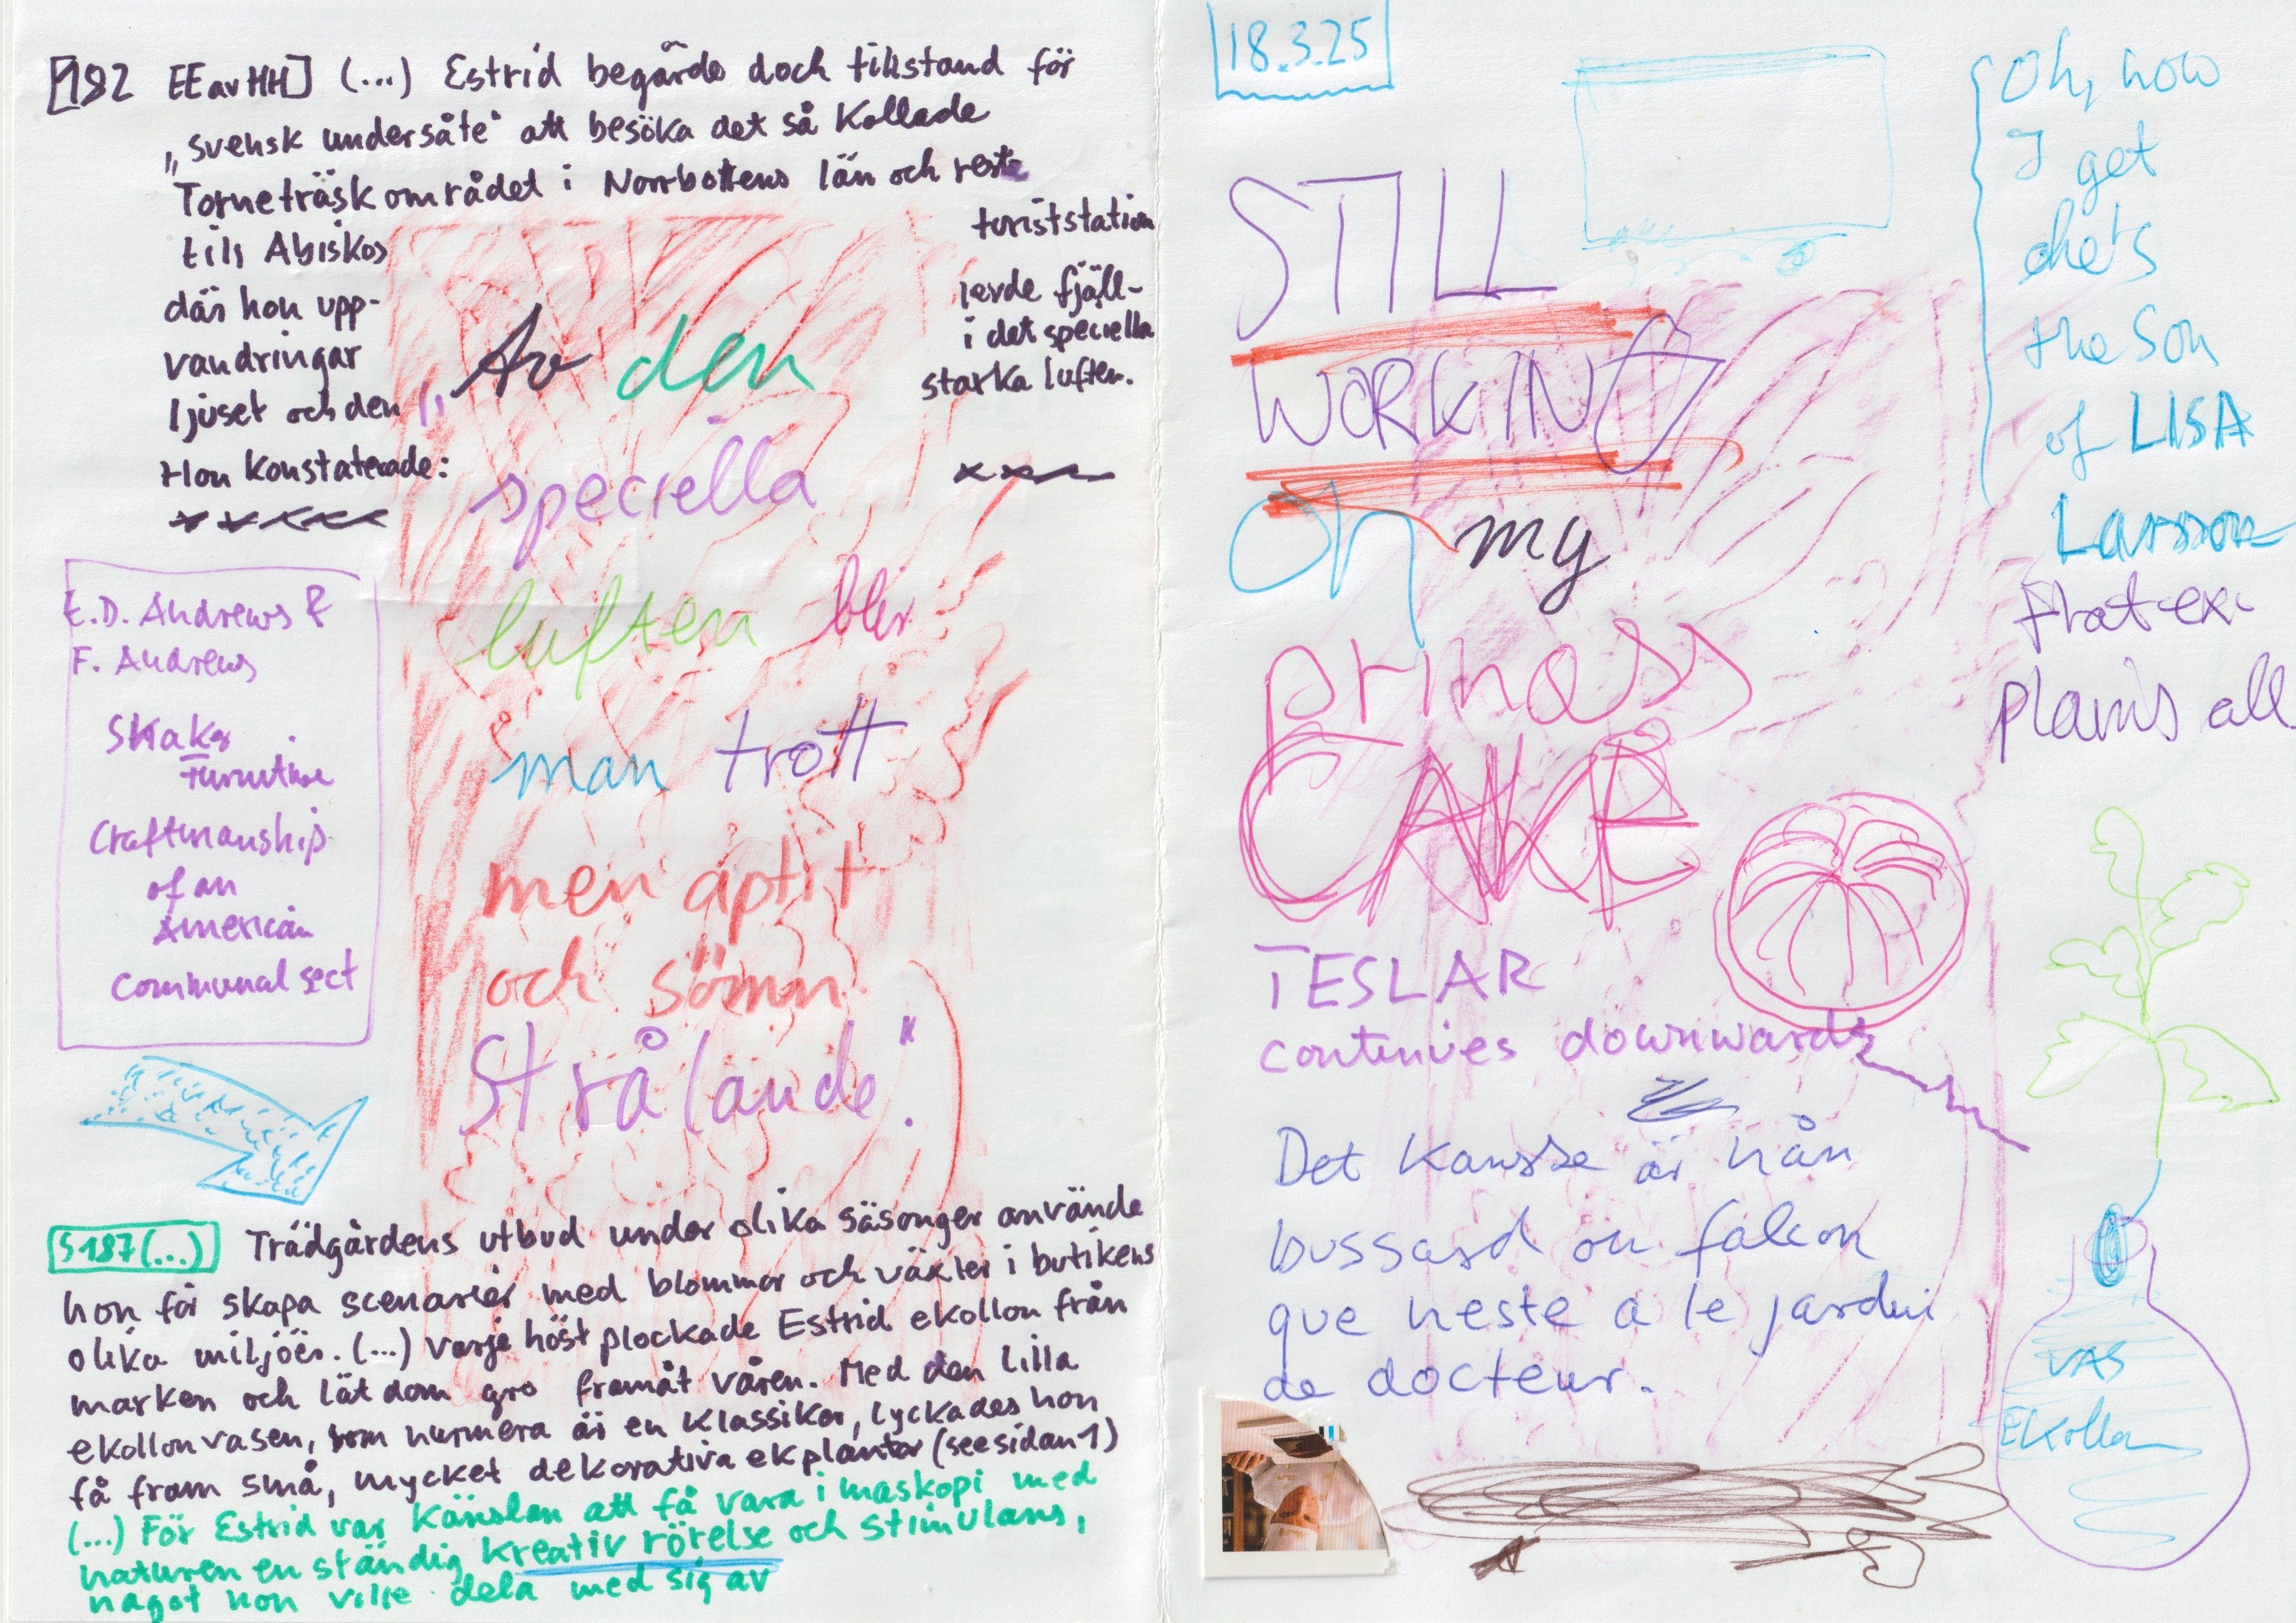 [182 EEavHH] (...) Estrid begärde doch tillstand för
„svensk undersåte" att besöka det så Kallade
Torneträskområdet i Norrbottens län och reste
till Abiskos turiststation
där hon upp- levde fjäll-
vandringar i det speciella
ljuset och den starka luften.
Hon konstaterade:
„Av den
speciella
luften blir
man trött
men aptit
och sömn
Strålande."
E.D. Andrews &
F. Andrews
Shaker
Furniture
Craftmanship
of an
American
Communal sect
S187(...) Trädgårdens utbud under olika säsonger använde
hon för skapa scenarier med blommor och växter i butikens
olika miljöer. (...) Varje höst plockade Estrid ekollon från
marken och lät dom gro framåt våren. Med den lilla
ekollonvasen, som numera är en klassiker, lyckades hon
få fram små, mycket dekorativa ekplantor (see sidan 1)
(...) För Estrid var Känslan att få vara i maskopi med
naturen en ständig kreativ rörelse och stimulans,
något hon ville dela med sig av
18.3.25
STILL
WORKING
On my
prinsess
CAKE
TESLAR
continues downwards
Det Kansse är nån
bussard ou falcon
que neste a le jardin
de docteur.
Oh, now
I get
he's
the Son
of LISA
Larsson
that ex-
plains all
VAS
Ekollon